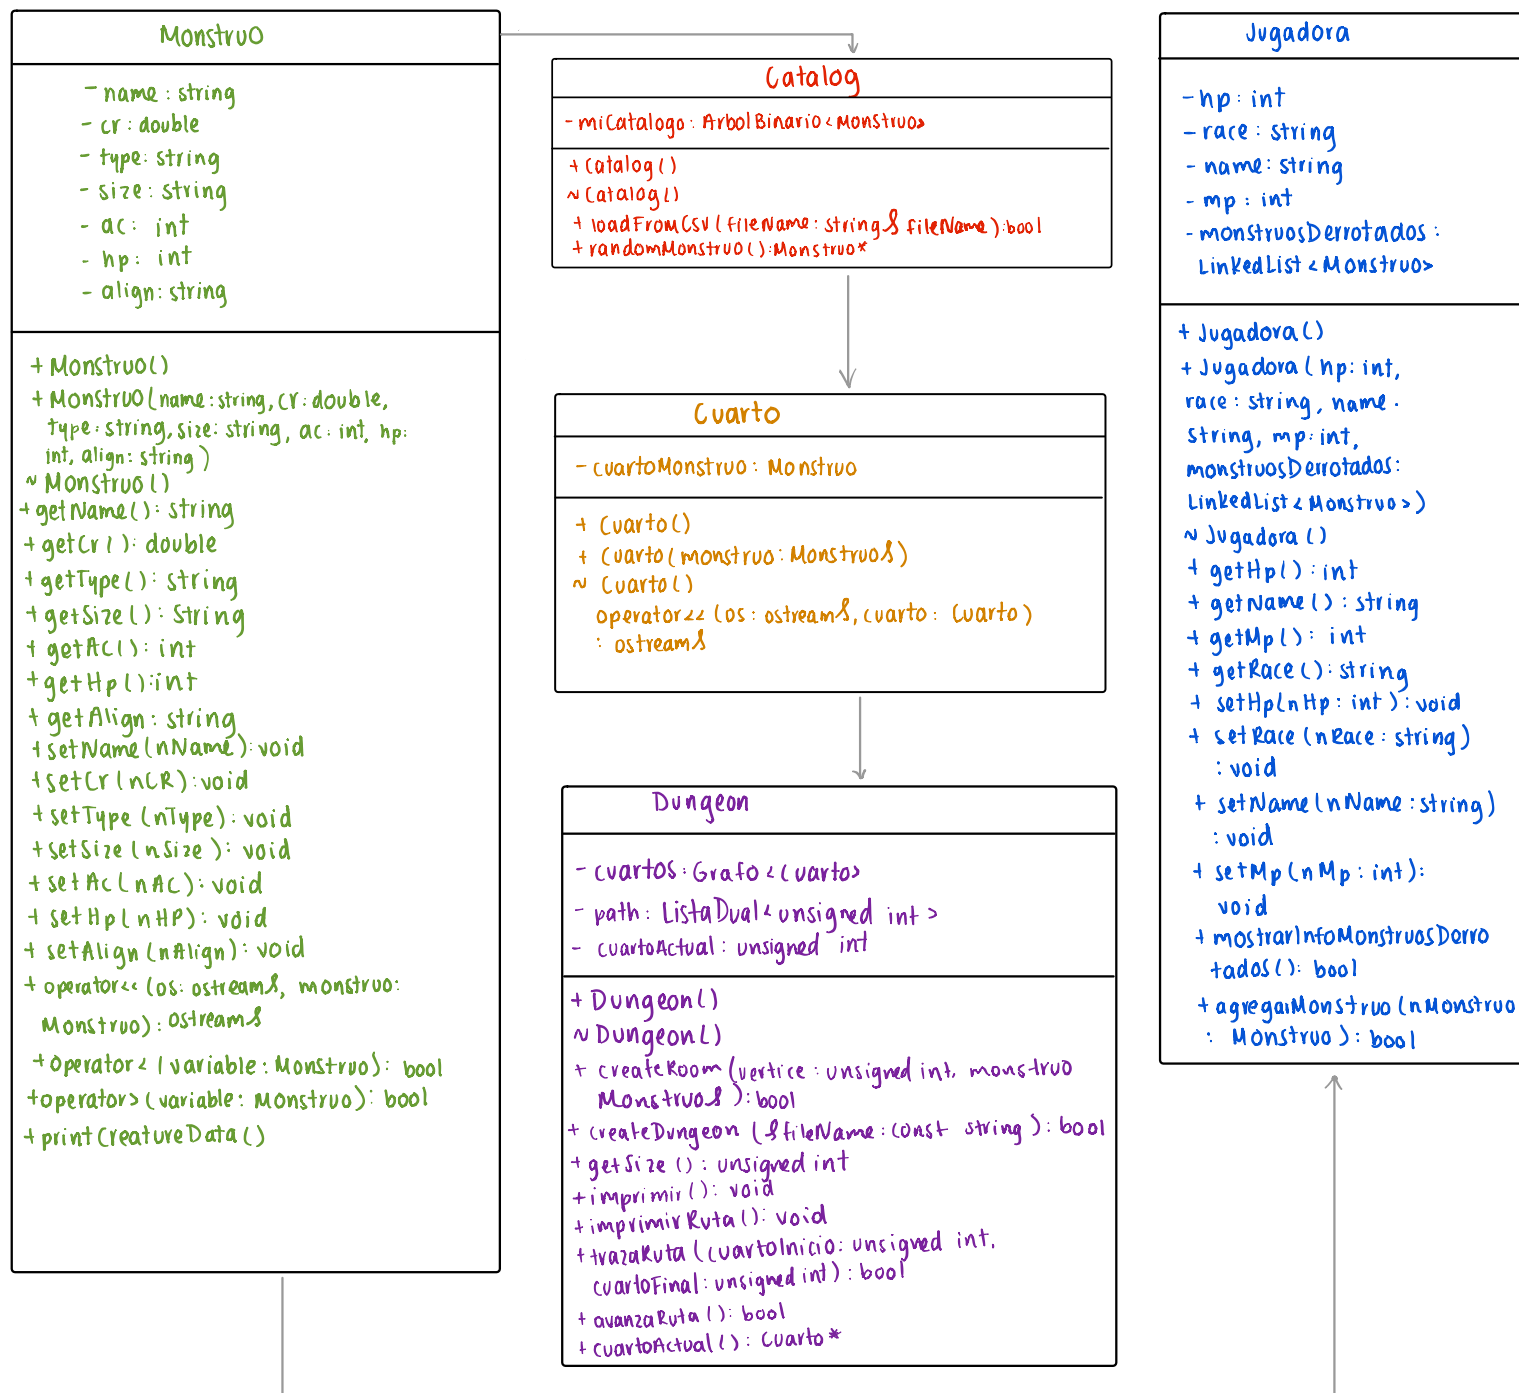 Monstruo
- name: string
- cr: double
- type: string
- size: string
- ac: int
- hp: int
- align: string
+ Monstruo()
+ Monstruo(name: string, cr: double,
type: string, size: string, ac: int, hp:
int, align: string)
~ Monstruo()
+ getName(): string
+ getCr(): double
+ getType(): string
+ getSize(): String
+ getAC(): int
+ getHp(): int
+ getAlign: string
+ setName(nName): void
+ setCr(nCR): void
+ setType(nType): void
+ setSize(nSize): void
+ setAc(nAC): void
+ setHp(nHP): void
+ setAlign(nAlign): void
+ operator<< (os: ostream&, monstruo:
Monstruo): ostream&
+ operator< (variable: Monstruo): bool
+ operator> (variable: Monstruo): bool
+ printCreatureData()
Catalog
- miCatalogo: ArbolBinario<Monstruo>
+ Catalog()
~ Catalog()
+ loadFromCsv(fileName: string& fileName): bool
+ randomMonstruo(): Monstruo*
Cuarto
- cuartoMonstruo: Monstruo
+ Cuarto()
+ Cuarto(monstruo: Monstruo&)
~ Cuarto()
operator<< (os: ostream&, cuarto: Cuarto)
: ostream&
Dungeon
- cuartos: Grafo<Cuarto>
- path: ListaDual<unsigned int>
- cuartoActual: unsigned int
+ Dungeon()
~ Dungeon()
+ createRoom(vertice: unsigned int, monstruo
Monstruo&): bool
+ createDungeon (&fileName: const string): bool
+ getSize(): unsigned int
+ imprimir(): void
+ imprimirRuta(): void
+ trazaRuta(cuartoInicio: unsigned int,
cuartoFinal: unsigned int): bool
+ avanzaRuta(): bool
+ cuartoActual(): Cuarto*
Jugadora
- hp: int
- race: string
- name: string
- mp: int
- monstruosDerrotados:
LinkedList<Monstruo>
+ Jugadora()
+ Jugadora(hp: int,
race: string, name:
string, mp: int,
monstruosDerrotados:
LinkedList<Monstruo>)
~ Jugadora()
+ getHp(): int
+ getName(): string
+ getMp(): int
+ getRace(): string
+ setHp(nHp: int): void
+ setRace(nRace: string)
: void
+ setName(nName: string)
: void
+ setMp(nMp: int):
void
+ mostrarInfoMonstruosDerro
tados(): bool
+ agregarMonstruo(nMonstruo
: Monstruo): bool